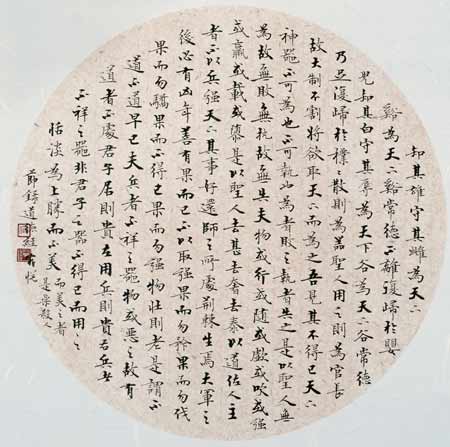 知其雄守其雌為天下
谿為天下谿常德不離復歸於嬰
兒知其白守其辱為天下谷為天下谷常德
乃足復歸於樸樸散則為器聖人用之則為官長
故大制不割將欲取天下而為之吾見其不得已天下
神器不可為也不可執也為者敗之執者失之是以聖人無
為故無敗無執故無失夫物或行或隨或歔或吹或强
或羸或載或隳是以聖人去甚去奢去泰以道佐人主
者不以兵强天下其事好還師之所處荆棘生焉大軍之
後必有凶年善有果而已不以取强果而勿矜果而勿伐
果而勿驕果而不得已果而勿强物壯則老是謂不
道不道早已夫兵者不祥之器物或惡之故有
道者不處君子居則貴左用兵則貴右兵者
不祥之器非君子之器不得已而用之
恬淡為上勝而不美
而美之者
是樂殺人
節録道德經